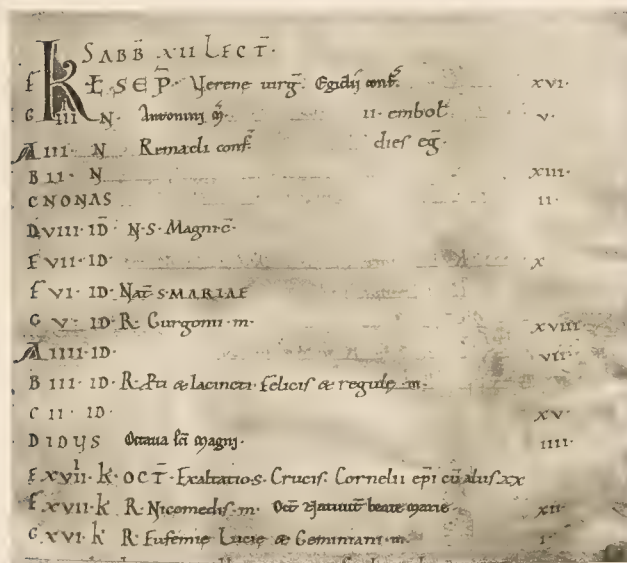 SABB̄ XII LECT̄·
F KL SEP̄· Verene uirḡ· Egidij conf̄· XVI·
G IIII N· Antonini m̄· II· embol̄· V·
A III· N Remacli conf̄· dies eḡ·
B II· N XIII·
C NONAS II·
D VIII· ID̄ N·S· Magni·c̄·
E VII· ID· X
F VI· ID· Nat̄ S·MARIAE
G V· ID· R· Gurgonii·m· XVIII·
A IIII·ID· VII·
B III· ID· R· Pti & Iacincti· felicis & regule·m·
C II· ID· XV·
D IDUS Octaua sc̄i Magnj· IIII·
E XVIII· K· OCT̄· Exaltatio·s· Crucis· Cornelii ep̄i cū aliis·XX
F XVII· K R· Nicomedis·m· Oct̄ Natiuit̄ beate marie· XII·
G XVI· K R· Eufemie Lucie & Geminiani·m· I·